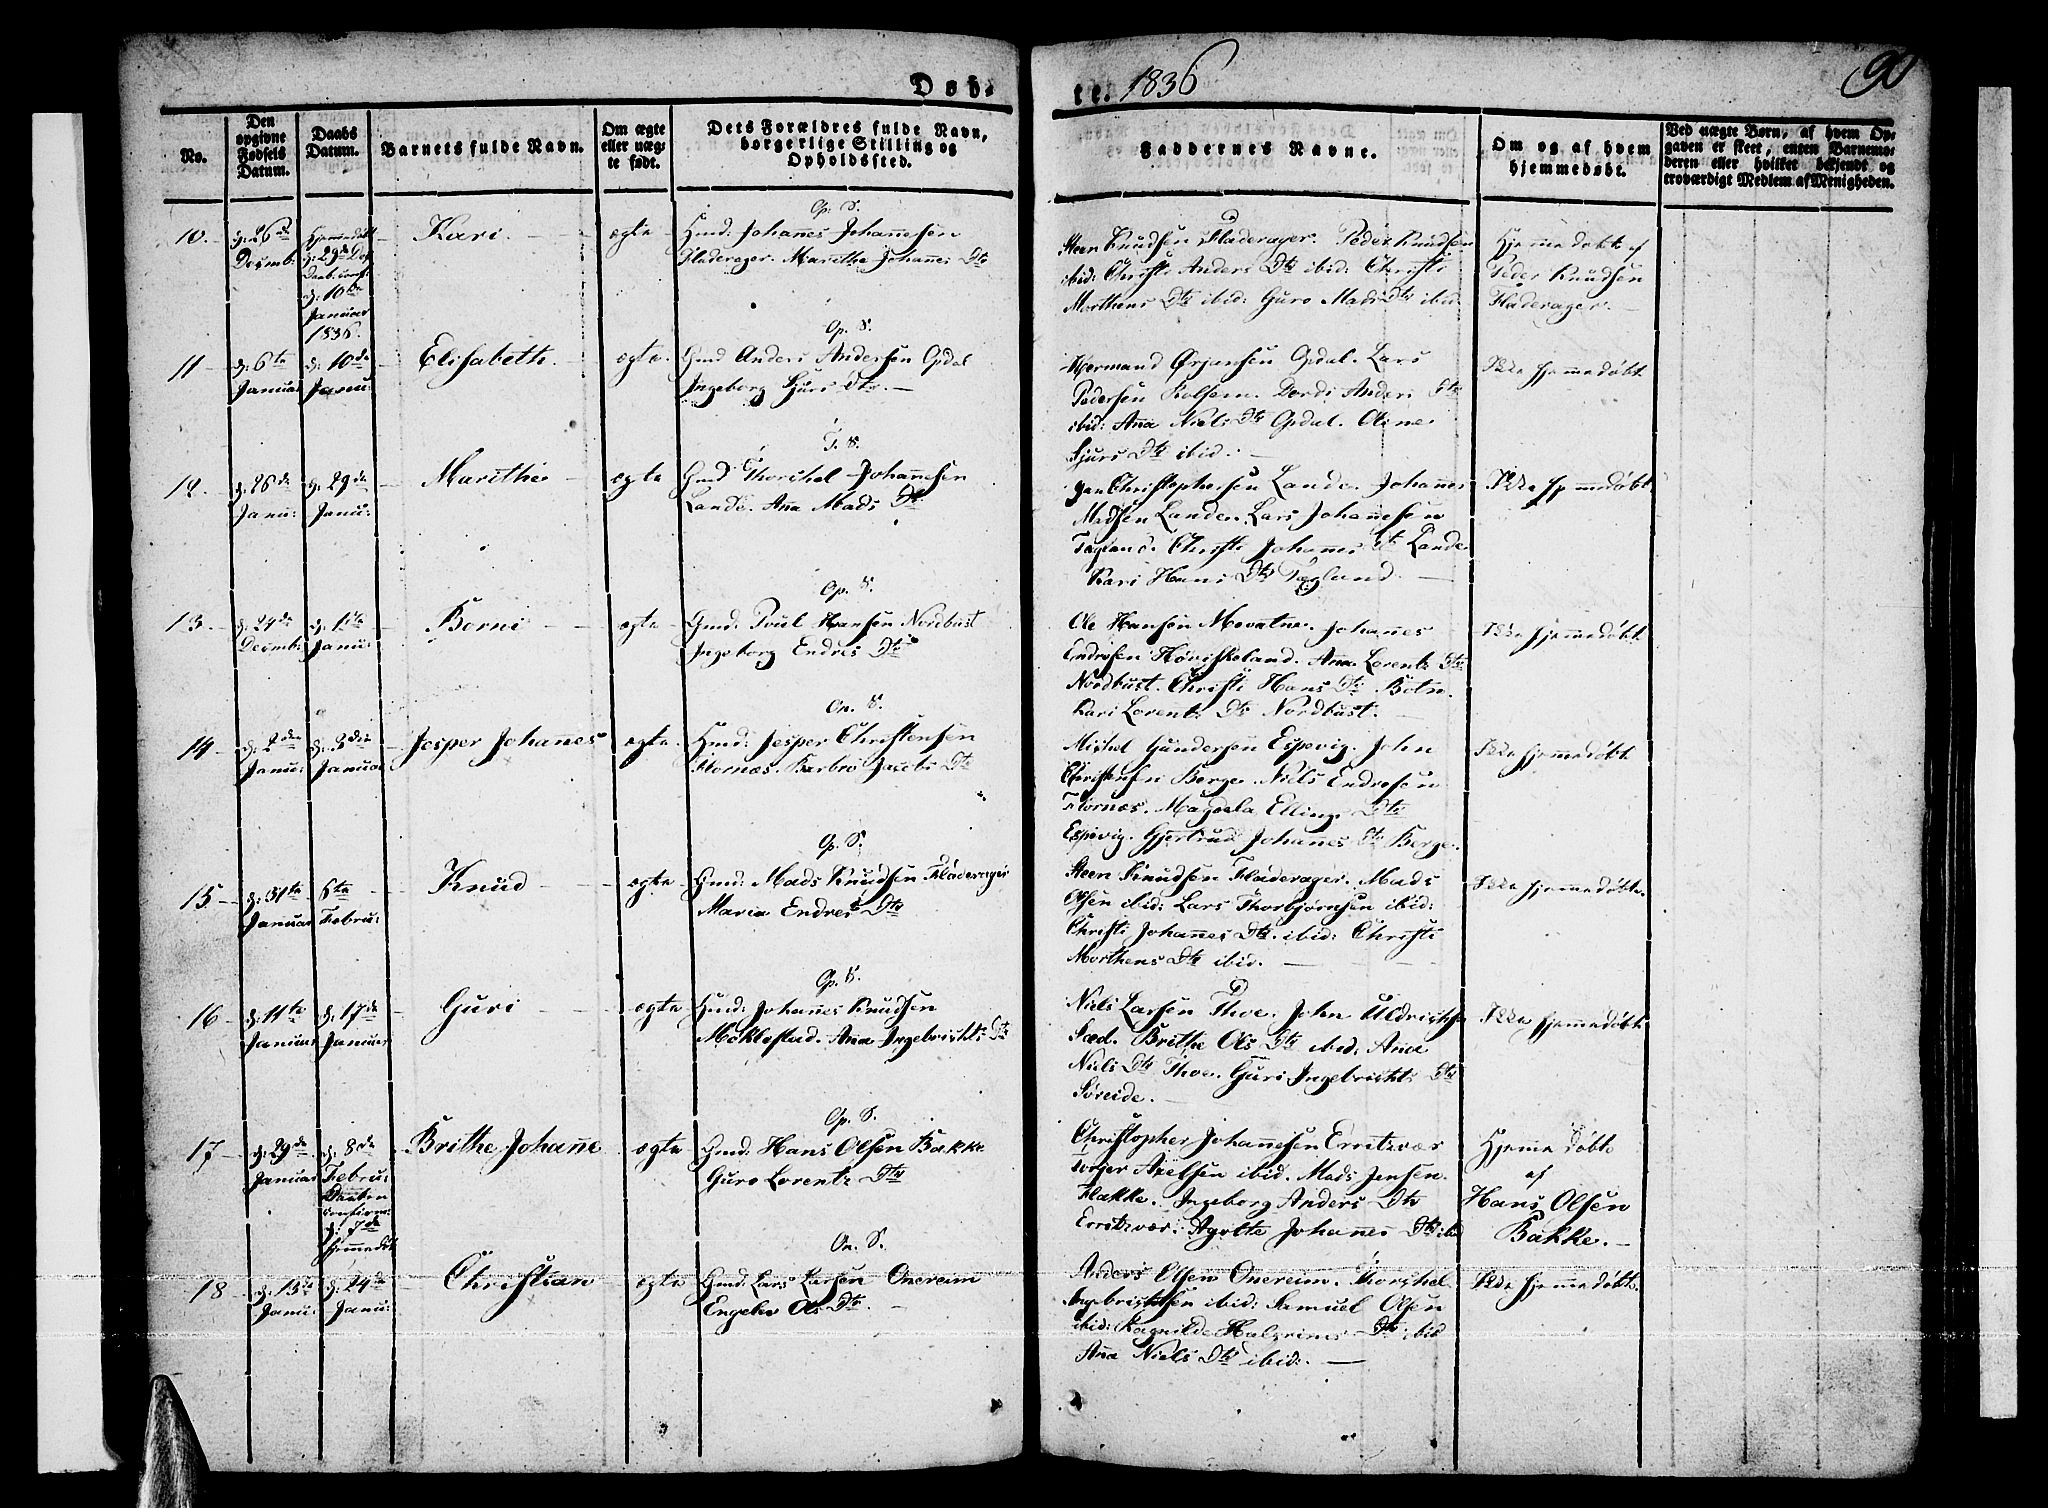 Døb-
te. 1836
90
No.
Den
opgivne
Fødsels
Datum.
Daabs
Datum.
Barnets fulde Navn.
Om ægte
eller uæg-
te født.
Dets Forældres fulde Navn,
borgerlige Stilling og
Opholdssted.
Faddernes Navne.
Om og af hvem
hjemmedøbt.
Ved uægte Børn, af hvem Op-
gaven er skeet, enten Barnemo-
deren eller hvilket bekjendt og
troværdigt Medlem af Menigheden.
10.
d: 26de
Decmb:
Hjemmedøbt
d: 29de Dec
Daab. conf:
d: 10de
Januar
1836.
Kari.
ægte
Op. S.
Gmd: Johanes Johannesen
Fladerager. Marithe Johannes Dtr
Steen Knudsen Fladerager. Peder Knudsen
ibid: Christi Anders Dtr ibid: Christi
Morthens Dtr ibid: Guro Mads Dtr ibid
Hjemmedøbt af
Peder Knudsen
Fladerager.
11
d: 6te
Januar
d: 10de
Janu:
Elisabeth.
ægte.
Op. S.
Gmd Anders Andersen Opdal
Ingeborg Sjurs Dtr.
Hermand Ørjansen Opdal. Lars
Pedersen Dordi Anders Dtr
ibid: Ana Niels Dtr Opdal. Oline
Sjurs Dtr ibid.
Ikke hjemmedøbt
12.
d: 26de
Janu:
d: 29de
Janu:
Marithe
ægte
T. S.
Gmd Thorchel Johannesen
Lande. Ana Mads Dtr
Christophersen Lande. Johannes
Madsen Lande. Lars Johannesen
Tægland. Christi Johannes Dtr Lande
Kari Hans Dtr Tægland.
Ikke hjemmedøbt
13.
d: 24de
Decmb:
d: 1te
Janu:
Borni
ægte
Op. S.
Gmd: Poul Hansen Nordbust
Ingeborg Endres Dtr
Ole Hansen Movatne. Johannes
Endresen Høviskeland. Ana Lorents Dtr
Nordbust. Christi Hans Dtr Botn.
Kari Lorents Dtr Nordbust.
Ikke hjemmedøbt
14
d: 2den
Janu:
d: 3die
Januar
Jesper Johannes
ægte.
On. S.
Gmd: Jesper Christensen
Flornæs. Barbro Jacobs Dtr
Michel Gundersen Espevig. John
Christensen Berge. Niels Endresen
Flornæs. Magdela Ellings Dtr
Espevig. Gjertrud Johannes Dtr Berge.
Ikke hjemmedøbt
15
d: 31te
Januar
6te
Febru:
Knud
ægte
Op. S.
Gmd: Mads Knudsen Fladerager
Maria Endres Dtr
Steen Knudsen Fladerager. Mads
Olsen ibid: Lars Thorbjørnsen ibid:
Christi Johannes Dtr. ibid: Christi
Morthens Dtr ibid.
Ikke hjemmedøbt.
16
d: 11te
Januar
d: 17de
Januar
Guri
ægte
Op. S.
Gmd: Johannes Knudsen
Møklestad. Ana Ingebrichts Dtr
Niels Larsen Thoe. John Uldrichsen
Sæd. Brithe Ols Dtr ibid. Ana
Niels Dtr Thoe. Guri Ingebrichts Dtr
Søreide.
Ikke hjemmedøbt
17
d: 29de
Januar
d: 8de
Febru:
Daaben
confirm:
d: 7de
hjemmedøbt
Brithe Johanne
ægte
Op. S.
Gmd: Hans Olsen Bakke
Guro Lorents Dtr
Christopher Johannesen Erritzvær
Torger Axelsen ibid. Mads Jensen
Flakke. Ingeborg Anders Dtr
Erritzvær. Agathe Johannes Dtr ibid
Hjemmedøbt
af
Hans Olsen
Bakke.
18
d: 15de
Janu:
d: 24de
Janu:
Christian
ægte
On. S.
Gmd: Lars Larsen Onereim
Engelev Ols Dtr.
Anders Olsen Onereim. Thorchel
Ingebrichtsen ibid: Samuel Olsen
ibid: Ragnilde Halgrims Dtr ibid
Ana Niels Dtr ibid:
Ikke hjemmedøbt.